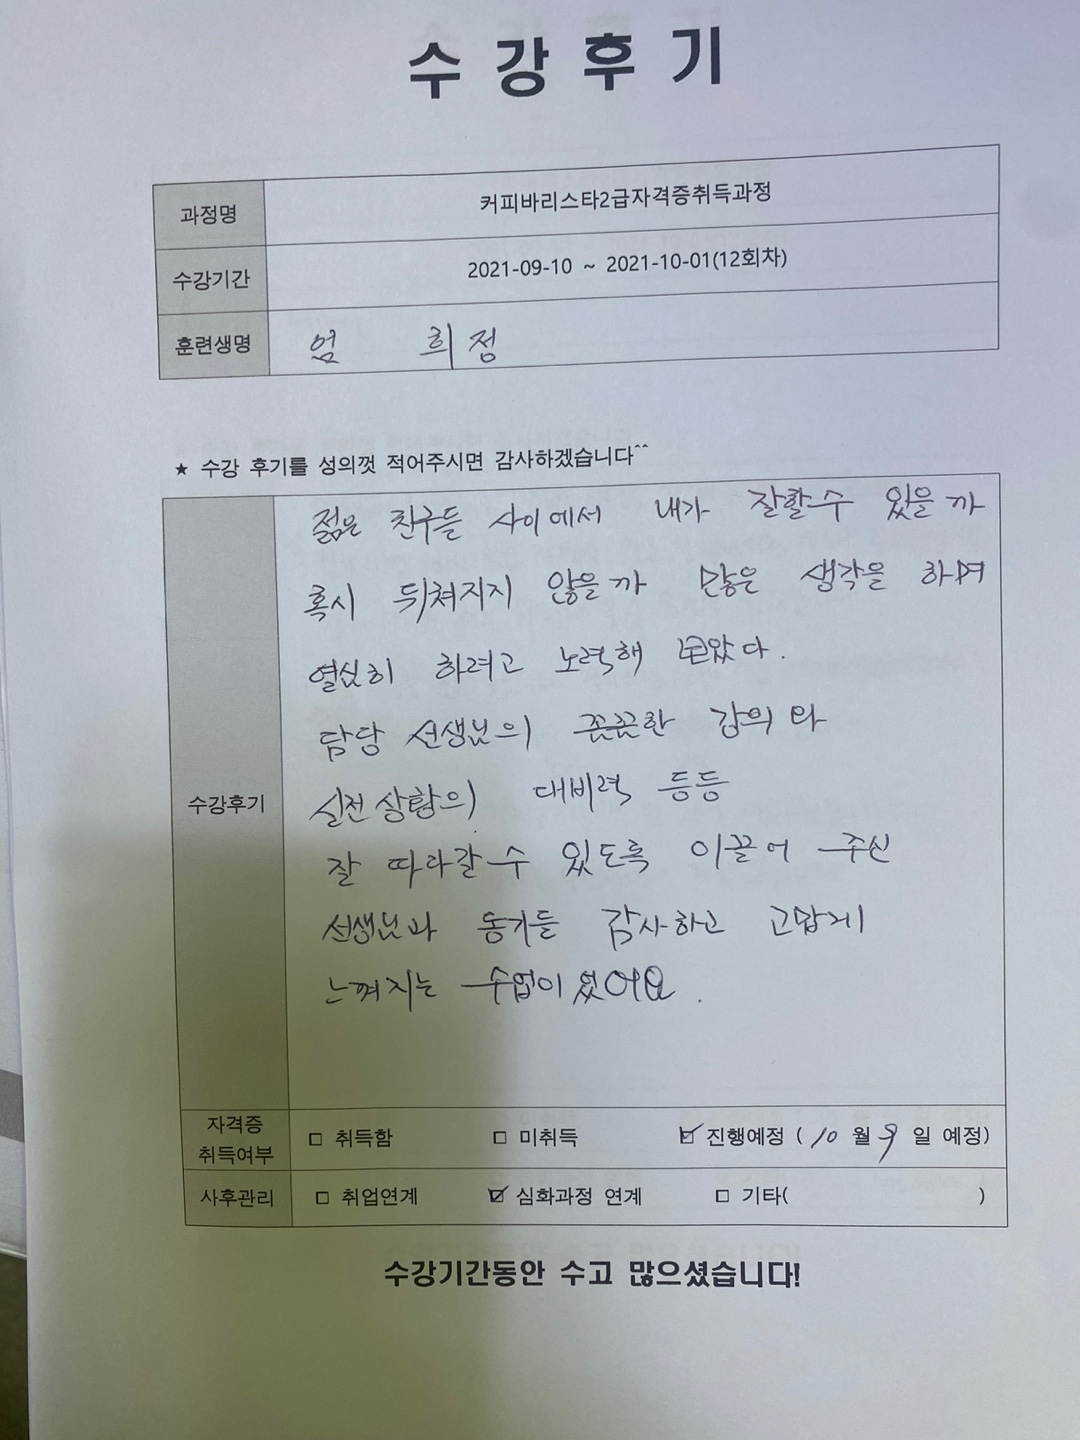 수강후기
과정명 커피바리스타2급자격증취득과정
수강기간 2021-09-10 ~ 2021-10-01(12회차)
훈련생명 엄 희정
★ 수강 후기를 성의껏 적어주시면 감사하겠습니다^^
젊은 친구들 사이에서 내가 잘할수 있을까
혹시 뒤쳐지지 않을까 많은 생각을 하며
열심히 하려고 노력해 보았다.
담당 선생님의 꼼꼼한 강의와
실전상황의 대비력 등등
수강후기
잘 따라갈수 있도록 이끌어 주신
선생님과 동기들 감사하고 고맙게
느껴지는 수업이었어요.
자격증 취득여부 □ 취득함 □ 미취득 ☑ 진행예정 ( 10 월 9 일 예정)
사후관리 □ 취업연계 ☑ 심화과정 연계 □ 기타( )
수강기간동안 수고 많으셨습니다!